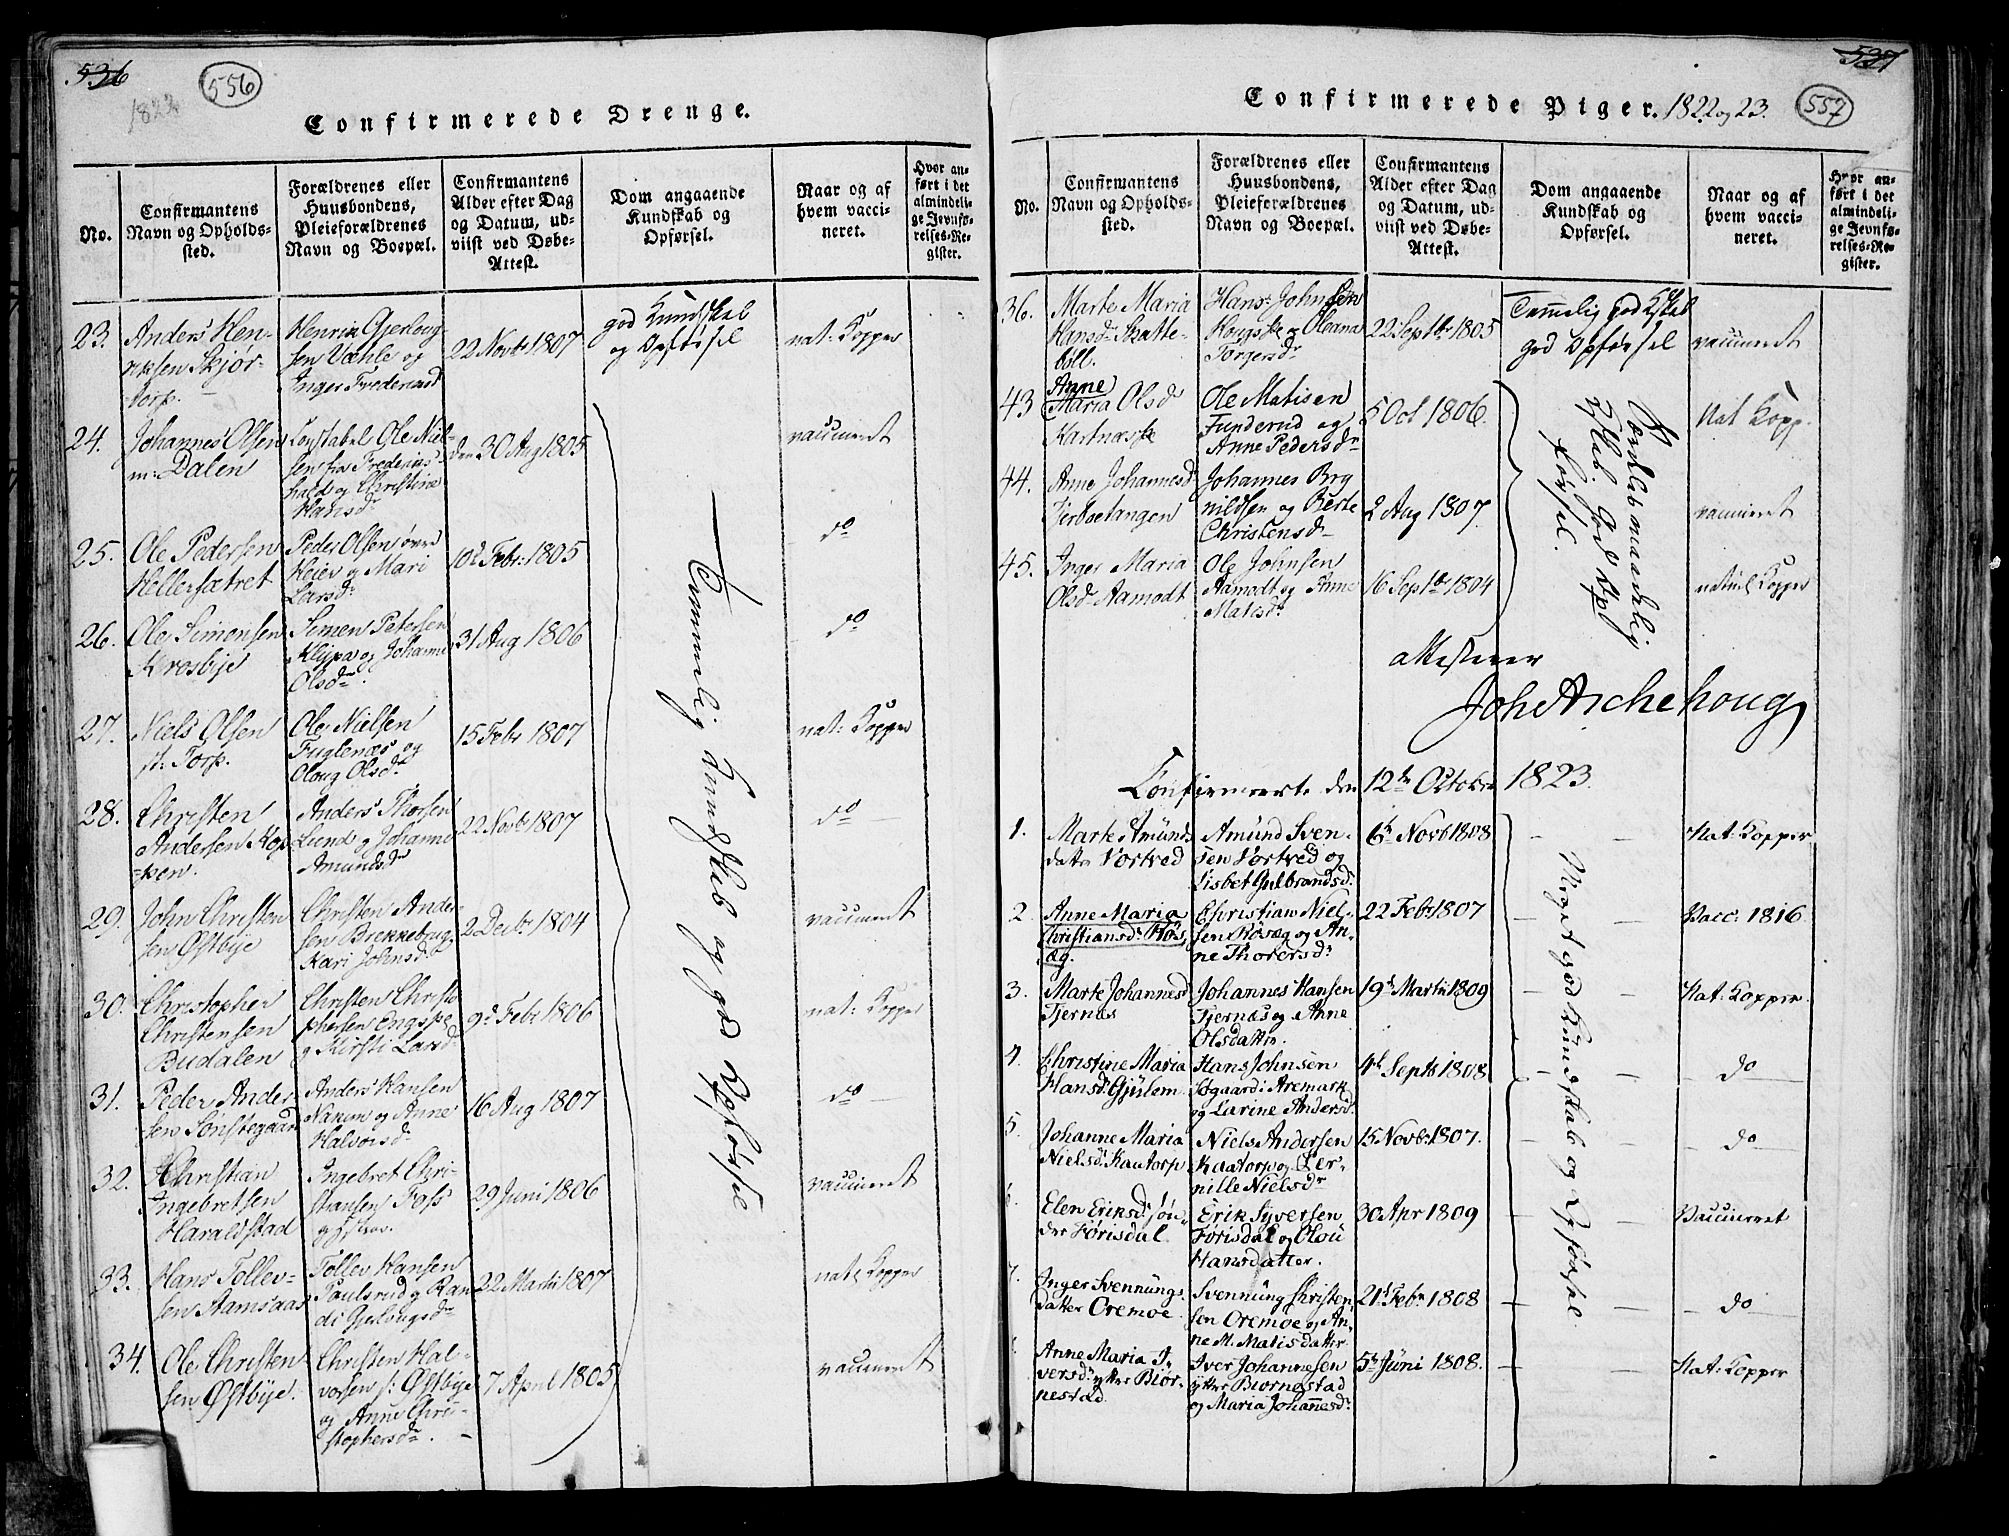 536
556
1822
Confirmerede Drenge.
No.
Confirmantens
Navn og Opholds-
sted.
Forældrenes eller
Huusbondens,
Pleieforældrenes
Navn og Boepæl.
Confirmantens
Alder efter Dag
og Datum, ud-
viist ved Døbe-
Attest.
Dom angaaende
Kundskab og
Opførsel.
Naar og af
hvem vacci-
neret.
Hvor an-
ført i det
almindeli-
ge Jevnfø-
relses-Re-
gister.
23.
Anders Hen-
riksen Skjør-
torp.
Henrik Gjerloug-
sen Væhle og
Inger Fredriksd
22 Novbr 1807
god Kundskab
og Opførsel
nat: Kopper
24.
Johannes Olsen
m: Dalen
Constabel Ole Niel-
sen fra Frederiks-
hald og Christine
Hansd
den 30 Aug 1805
vaccineret
25.
Ole Pedersen
Hellesætret
Peder Olsen øvre
Heier og Mari
Larsd
10d Febr: 1805
do
26.
Ole Simonsen
Krosbye
Simen Petersen
Klypa og Johanne
Olsd
31 Aug 1806
do
27.
Niels Olsen
st: Torp.
Ole Nielsen
Fuglenæs og
Oloug Olsd
15 Febr 1807
nat: Kopper
28.
Christen
Andersen Kop
-pen.
Anders Thorsen
Lund og Johanne
Amundsd
22 Novb 1807
do
29.
John Christen
sen Østbye
Christen Ander-
sen Brekkebrug
Kari Johnsd
2 Decbr 1804
vaccineret
30.
Christopher
Christensen
Budalen
Christen Christo
phersen Engs
og Kirsti Larsd
9d Febr 1806
nat: Kopper
31.
Peder Ander
sen Sonstegaard
Anders Hansen
Nakim og Anne
Halvorsd
16 Aug 1807
do
32.
Christian
Ingebretsen
Haraldstad
Ingebret Chri-
stiansen Foss
og
29 Juni 1806
vaccineret
33.
Hans Tollev-
sen Aamsaas
Tollev Hansen
Paulsrud og Ran
di Gjerlougsd
22 Martii 1807
nat: Kopper
34.
Ole Christen-
sen Østbye.
Christen Hal-
vorsen s: Østbye
og Anne Chri-
stophersd
7 April 1805
vaccineret
Temmelig Kundskab og god Opførsel
537
557
Confirmerede Piger. 1822 og 23.
No.
Confirmantens
Navn og Opholds-
sted.
Forældrenes eller
Huusbondens,
Pleieforældrenes
Navn og Boepæl.
Confirmantens
Alder efter Dag
og Datum, ud-
viist ved Døbe-
Attest.
Dom angaaende
Kundskab og
Opførsel.
Naar og af
hvem vacci-
neret.
Hvor an-
ført i det
almindeli-
ge Jevnfø-
relses-Re-
gister.
36.
Marte Maria
Hansd Skatte-
böll.
Hans Johnsen
Hougs og Oleana
Torgersd
22 Septbr 1805
Temmelig god Kskab
god Opførsel
vaccineret
43
Anne
Maria Olsd
Kartnæs
Ole Matisen
Funderud og
Anne Pedersd
5 Oct 1806.
Nat Kopp.
44.
Anne Johannesd
Tierboetangen
Johannes Bry
nildsen og Berte
Christensd
2 Aug 1807.
vaccineret
45.
Inger Maria
Olsd Aamodt
Ole Johnsen
Aamodt og Anne
Matisd
16 Septbr 1804
naturl Kopper
Nordlab maadelig
Kskab. God Op-
førsel.
attesterer
Joh Aschehoug
Confirmerte den 12te Octobr 1823.
1.
Marte Amunds
datter Vortved
Amund Sven-
sen Vortved og
Lisbet Gulbrandsd:
6te Novb 1808
Nat: Kopper
2.
Anne Maria
Christiansd: Kos
æg.
Christian Niel-
sen Kosæg og An-
ne Thorersd:
22 Feb 1807
Vacc: 1816
3.
Marte Johannesd
Tjernæs
Johannes Hansen
Tjernæs og Anne
Olsdatter.
19d Martii 1809
Nat: Kopper
4.
Christine Maria
Hansd: Gjølsem
Hans Johnsen
Søgaard i Aremark
og Larine Andersd
4de Septb 1808
do
5.
Johanne Maria
Nielsd: Kaatorp
Niels Andersen
Kaatorp og Per-
nille Nielsd
15 Novb 1807.
do
6.
Elen Eriksd søn-
dre Tørisdal
Erik Syversen
Tørisdal og Olou
Hansdatter.
30 Apr 1809
Vaccineret
7.
Inger Svennungs-
datter Oremoe
Svennung Christen-
sen Oremoe og An-
ne M. Matisdatter
21d Feb 1808
do
Anne Maria I-
versd: ytter Biør-
nestad
Iver Johannesen
ytter Biørnestad
og Maria Johannesd:
5te Juni 1808.
Nat: Kopper
Meget god Kundskab og Opførsel